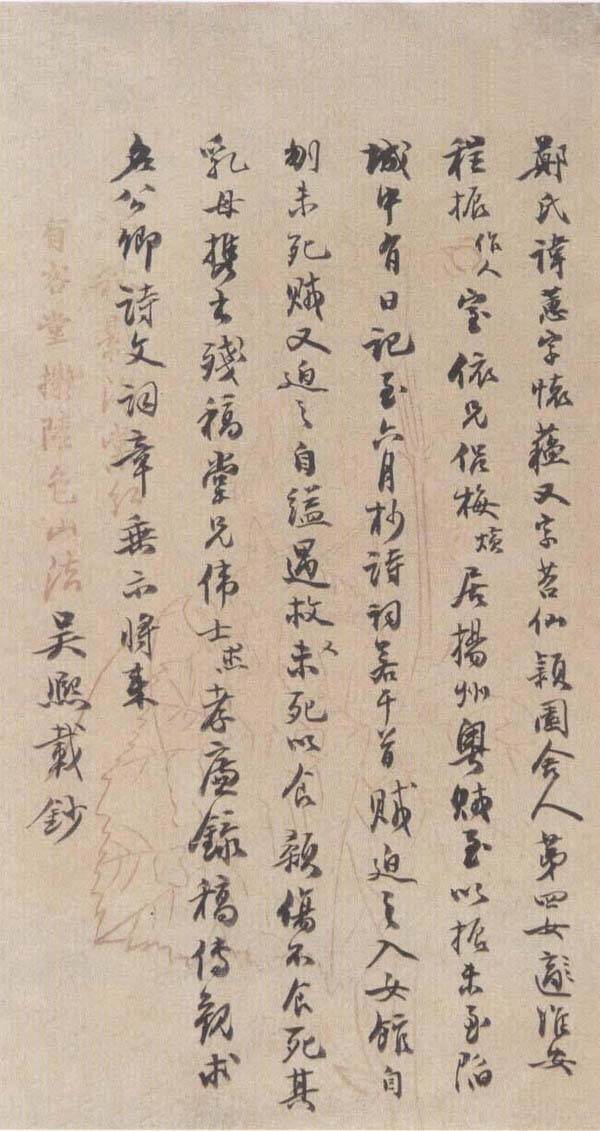 鄭氏諱蕙字懷蘊又字苕仙頴園舍人第四女適淮安
程振作人室依兄侶梅居揚州粵賊至以振未至陷
城中有日記至六月杪詩詞若干首賊迫之入女館自
刎未死賊又迫之自縊遇救又未死以食顙傷不食死其
乳母攜出殘稿堂兄偉士孝廉錄稿傳觀求
名公卿詩文詞章垂示將來
吳熙載鈔
堂撫陸包山法